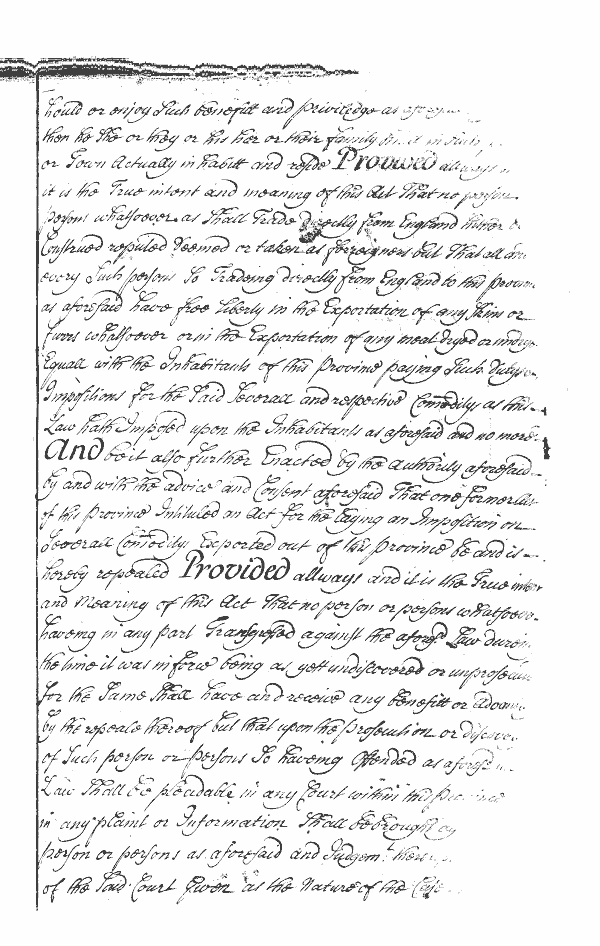 hould or enjoy Such benefitt and priviledge as
then he She or they or his her or their family in Such
or Town Actually in habitt and reside Provided allways
it is the True intent and meaning of this Act That no person
persons whatsoever as Shall Trade directly from England hither
Construed reputed Deemed or taken as forreigners but That all and
every Such persons So Tradeing directly from England to this Provin
as aforesaid have free Liberty in the Exportation of any Skins or
furrs whatsoever or in the Exportation of any meat dryed or
Equall with the Inhabitants of this Province paying Such Dutys
Impositions for the Said Severall and respective Comoditys as this
Law hath Imposed upon the Inhabitants as aforesaid and no more
And be it also further Enacted by the authority aforesaid
by and with the advice and Consent aforesaid That one former Act
of this Province Intituled an Act for the Laying an Imposition on
Severall Comoditys Exported out of this Province be and is
hereby repealed Provided allways and it is the True intent
and Meaning of this Act That no person or persons whatsoever
haveing in any part Transgressed against the aforesd Law dureing
the time it was in force being as yett undiscovered or unprosecu
for the Same Shall have and receive any benefitt or advan
by the repeale thereof but that upon the prosecution or discover
of Such person or persons So haveing Offended as aforesd
Law Shall be pleadable in any Court within this Province
in any plaint or Information Shall be brought
person or persons as aforesaid and Judgemt there
of the Said Court Given as the Nature of the Case